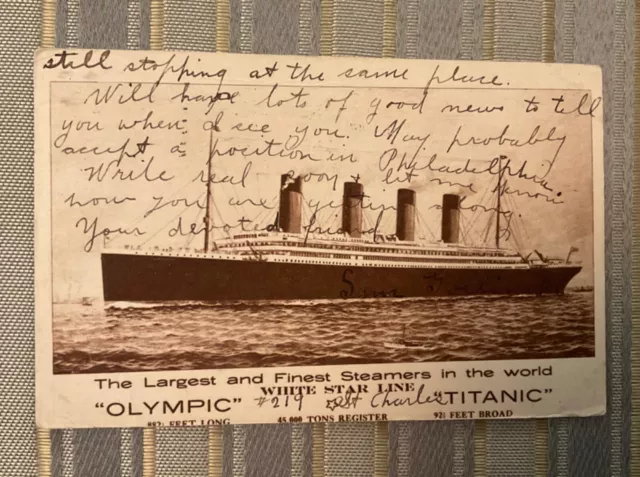 still stopping at the same place.
Will have lots of good news to tell
you when I see you. May probably
accept a position in Philadelphia.
Write real soon & let me know
how you are getting along.
Your devoted friend
Sam
The Largest and Finest Steamers in the world
WHITE STAR LINE
"OLYMPIC" #219 St Charles "TITANIC"
882½ FEET LONG 45,000 TONS REGISTER 92½ FEET BROAD